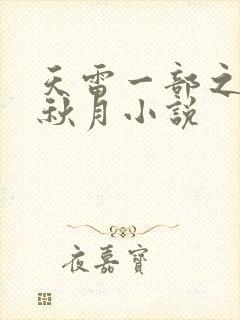 天雷一部之
秋月小説
夜嘉寶